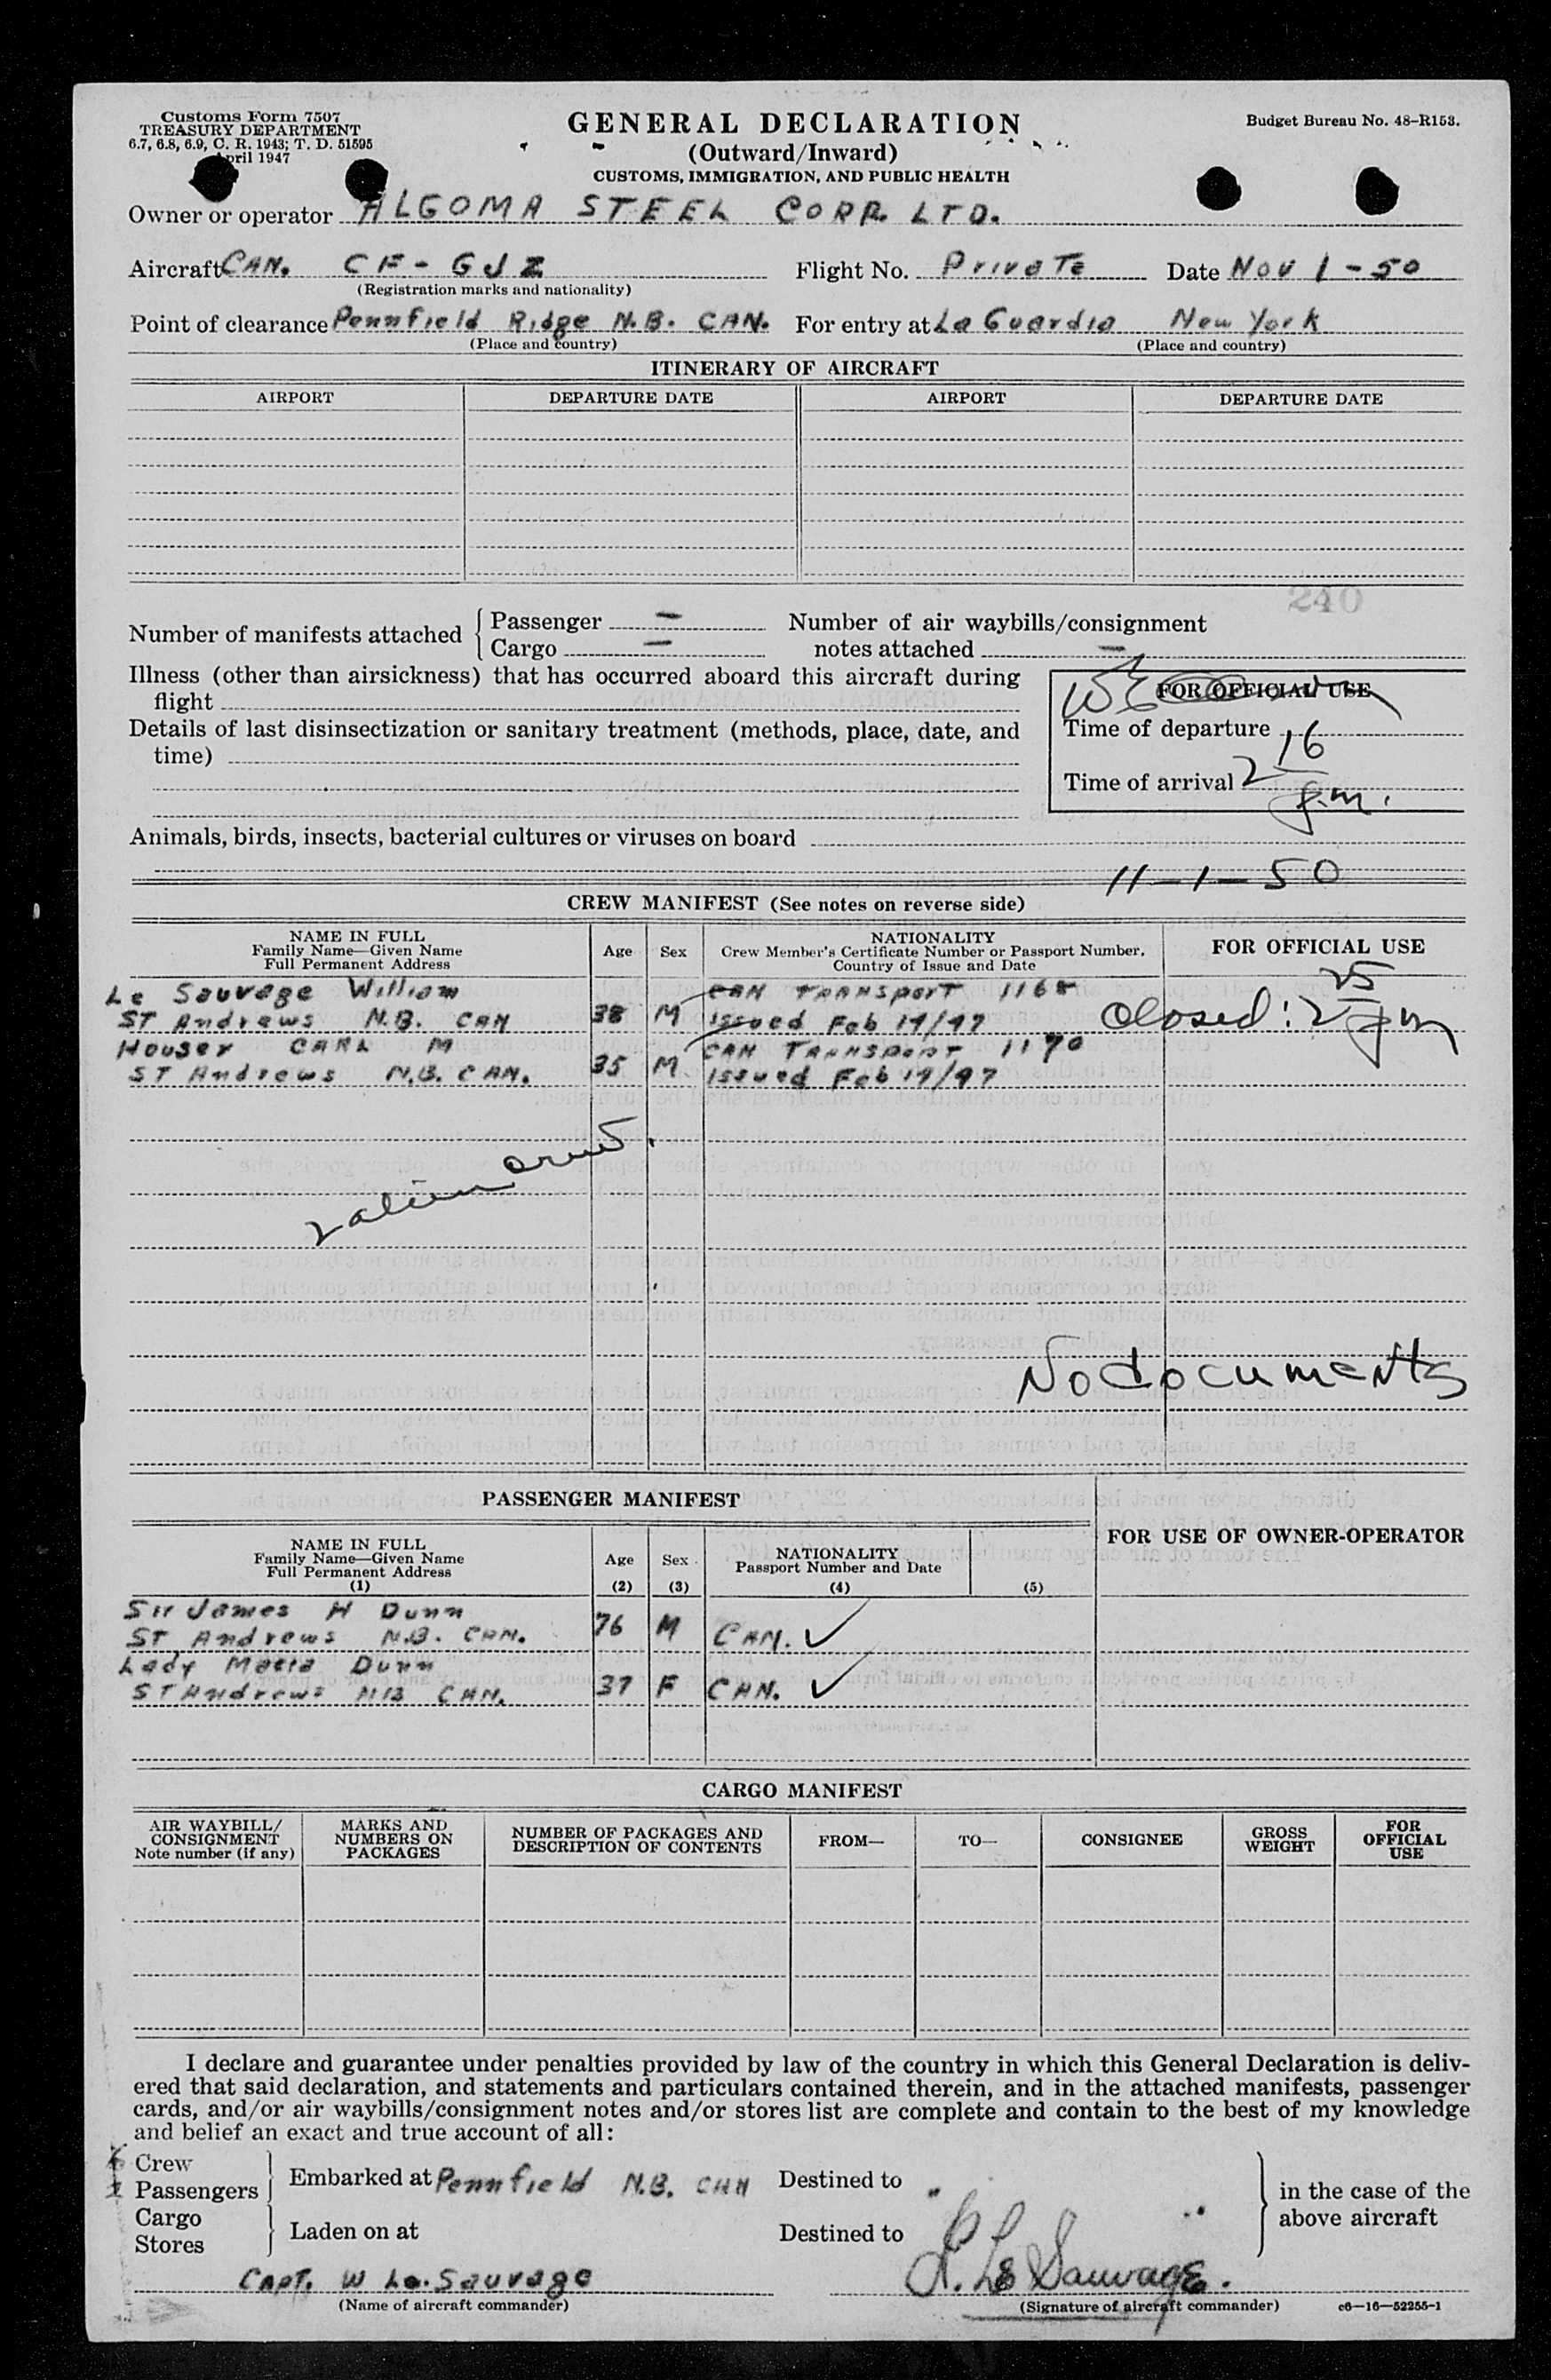 Customs Form 7507
TREASURY DEPARTMENT
6.7, 6.8, 6.9, C. R. 1943; T. D. 51595
April 1947
GENERAL DECLARATION
(Outward/Inward)
CUSTOMS, IMMIGRATION, AND PUBLIC HEALTH
Budget Bureau No. 48-R153.
Owner or operator ALGOMA STEEL CORP. LTD.
Aircraft CAN. CF-GJZ Flight No. Private Date Nov 1-50
(Registration marks and nationality)
Point of clearance Pennfield Ridge N.B. CAN. For entry at La Guardia New York
(Place and country) (Place and country)
ITINERARY OF AIRCRAFT
AIRPORT DEPARTURE DATE AIRPORT DEPARTURE DATE
240
Number of manifests attached { Passenger — Number of air waybills/consignment
Cargo — notes attached —
Illness (other than airsickness) that has occurred aboard this aircraft during
flight
FOR OFFICIAL USE
Details of last disinsectization or sanitary treatment (methods, place, date, and
time)
Time of departure
Time of arrival 2 16 p.m.
Animals, birds, insects, bacterial cultures or viruses on board
11-1-50
CREW MANIFEST (See notes on reverse side)
NAME IN FULL
Family Name—Given Name
Full Permanent Address
Age Sex
NATIONALITY
Crew Member's Certificate Number or Passport Number,
Country of Issue and Date
FOR OFFICIAL USE
Le Sauvage William CAN TRANSPORT 1168
ST Andrews N.B. CAN 38 M Issued Feb 19/47 Closed: 2 25 pm
Houser CARL M CAN TRANSPORT 1170
ST Andrews N.B. CAN. 35 M Issued Feb 19/47
No documents
PASSENGER MANIFEST
FOR USE OF OWNER-OPERATOR
NAME IN FULL
Family Name—Given Name
Full Permanent Address
(1)
Age
(2)
Sex
(3)
NATIONALITY
Passport Number and Date
(4) (5)
Sir James H Dunn
ST Andrews N.B. CAN. 76 M CAN. ✓
Lady Dunn
ST Andrews NB CAN. 37 F CAN. ✓
CARGO MANIFEST
AIR WAYBILL/
CONSIGNMENT
Note number (if any)
MARKS AND
NUMBERS ON
PACKAGES
NUMBER OF PACKAGES AND
DESCRIPTION OF CONTENTS
FROM—
TO—
CONSIGNEE
GROSS
WEIGHT
FOR
OFFICIAL
USE
I declare and guarantee under penalties provided by law of the country in which this General Declaration is deliv-
ered that said declaration, and statements and particulars contained therein, and in the attached manifests, passenger
cards, and/or air waybills/consignment notes and/or stores list are complete and contain to the best of my knowledge
and belief an exact and true account of all:
Crew
Passengers
Embarked at Pennfield N.B. CAN Destined to
in the case of the
above aircraft
Cargo
Stores
Laden on at Destined to
Capt. W Le Sauvage Le Sauvage.
(Name of aircraft commander) (Signature of aircraft commander) c6—16—52255-1